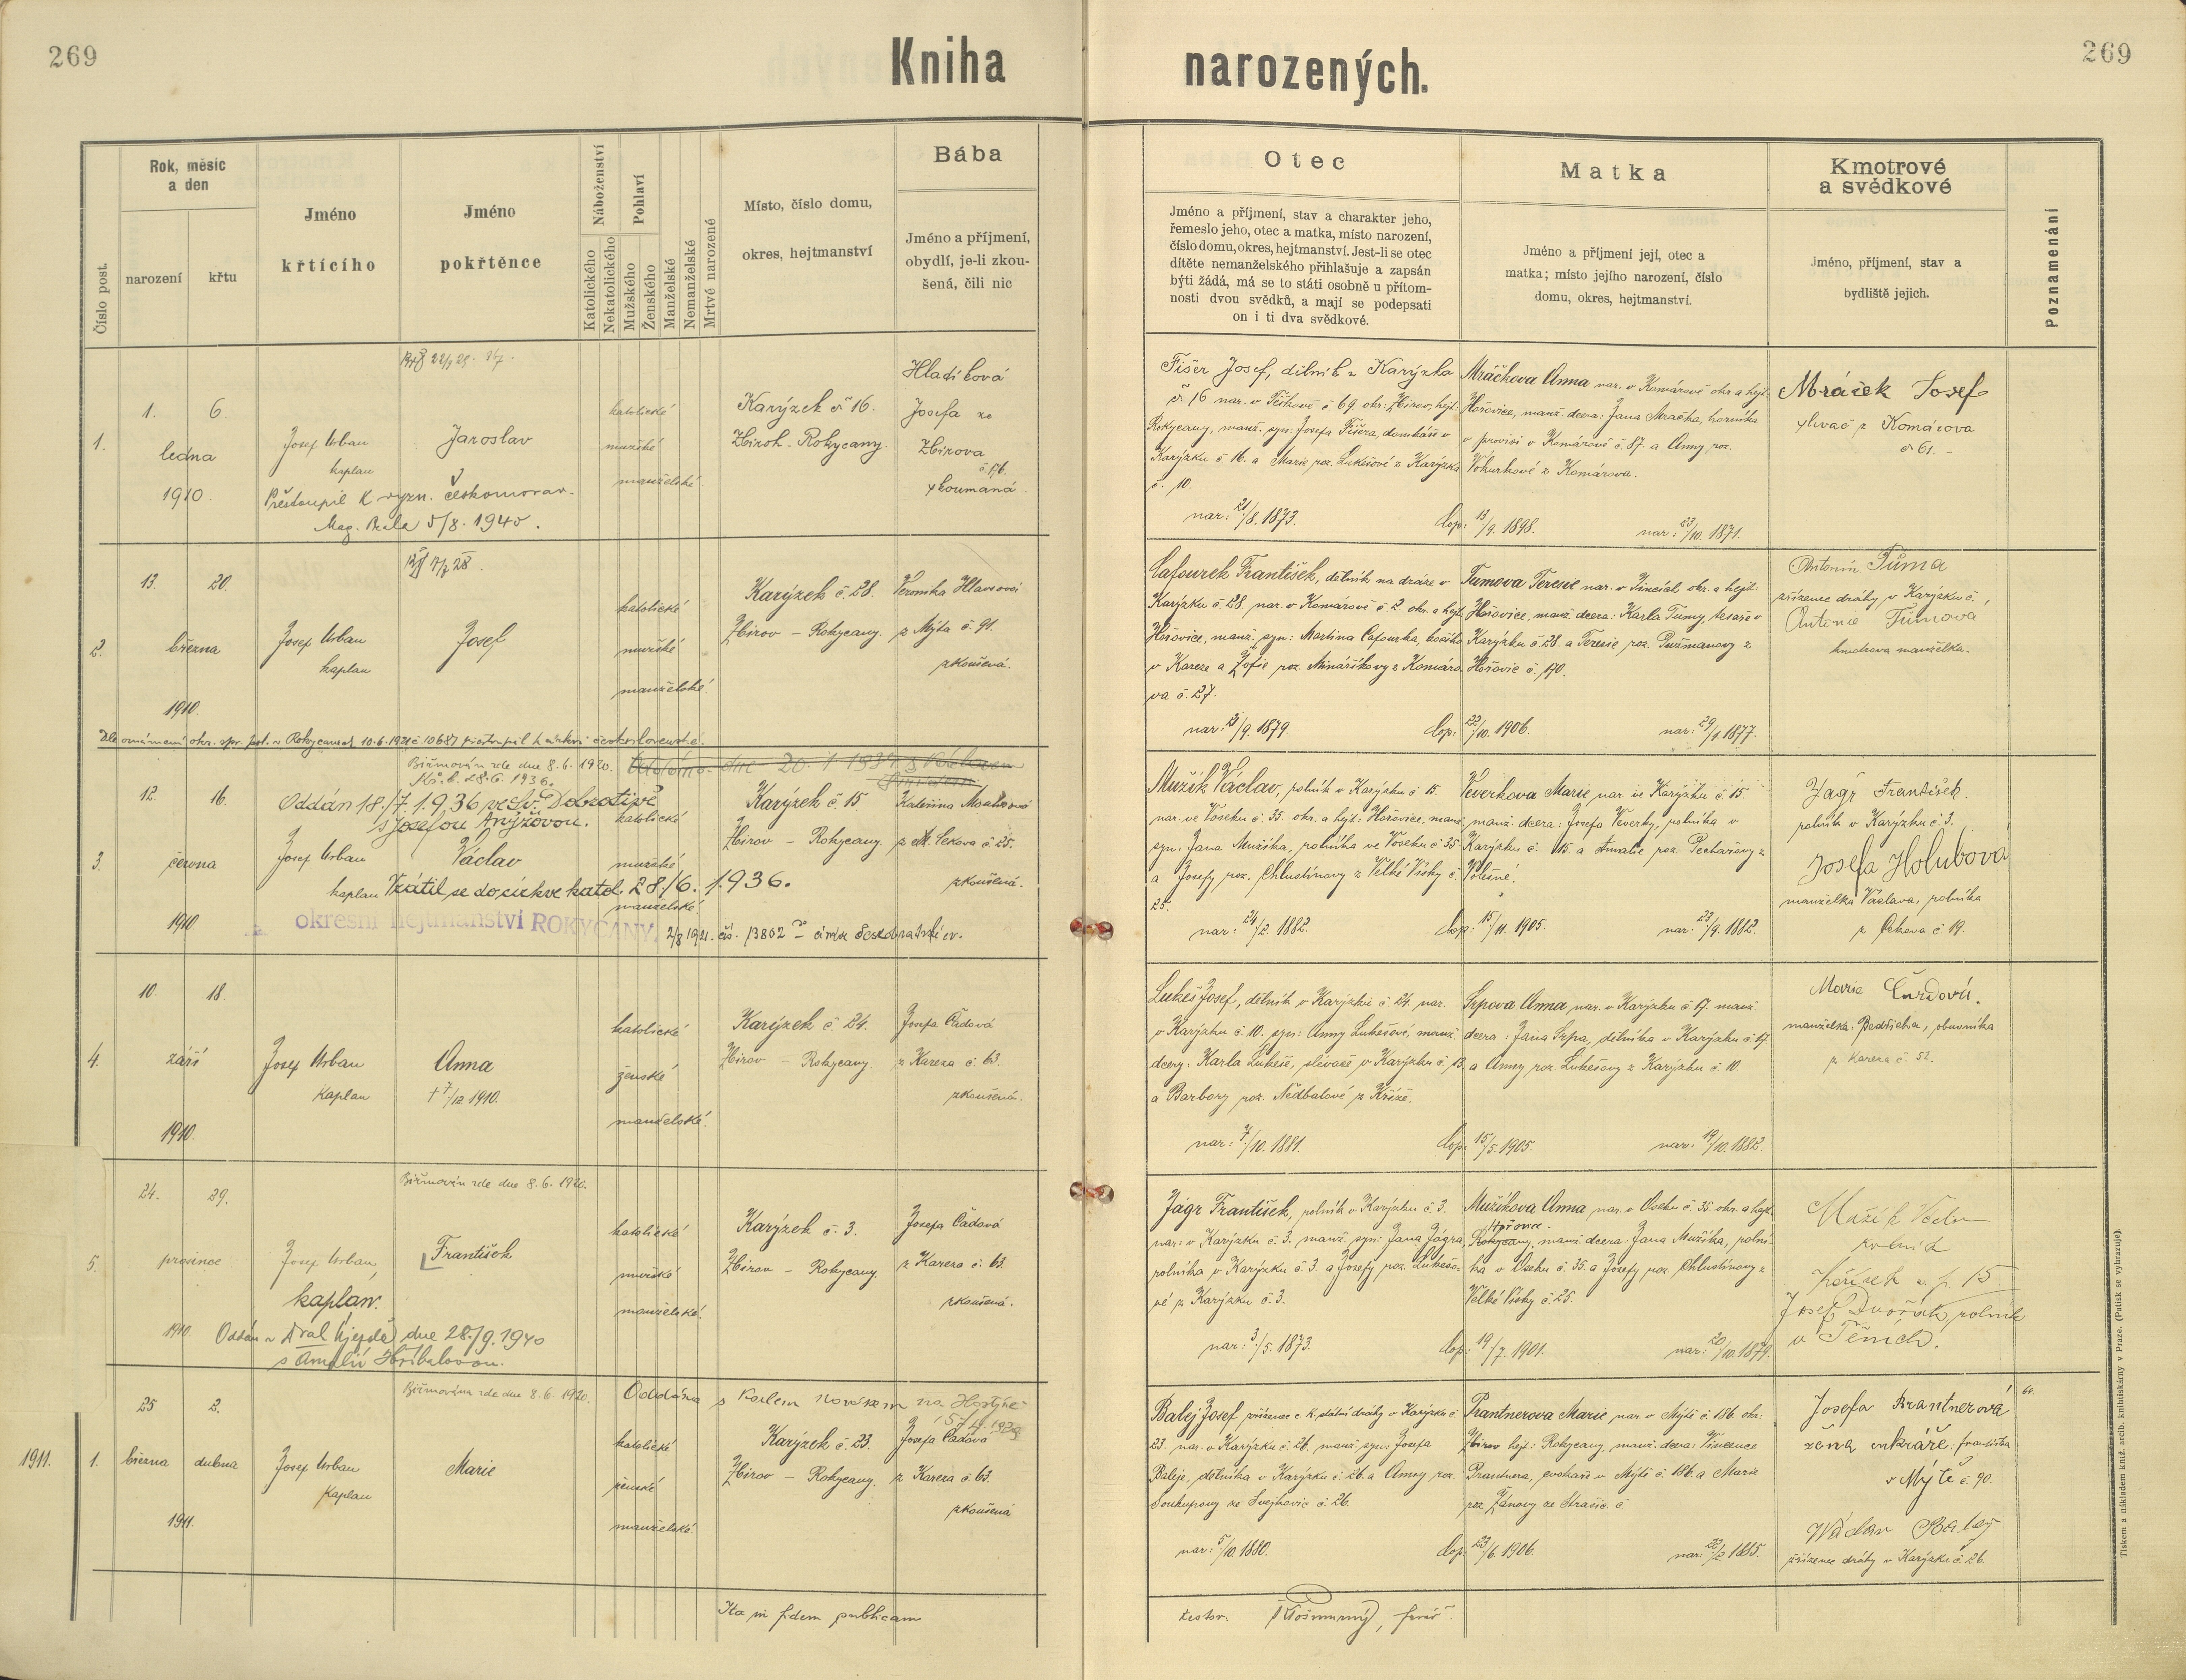 269
Kniha
narozených.
269
Číslo post.
Rok, měsíc
a den
narození
křtu
Jméno
křtícího
Jméno
pokřtěnce
Náboženství
Katolického
Nekatolického
Pohlaví
Mužského
Ženského
Manželské
Nemanželské
Mrtvé narozené
Místo, číslo domu,
okres, hejtmanství
Bába
Jméno a příjmení,
obydlí, je-li zkou-
šená, čili nic
Otec
Jméno a příjmení, stav a charakter jeho,
řemeslo jeho, otec a matka, místo narození,
číslo domu, okres, hejtmanství. Jest-li se otec
dítěte nemanželského přihlašuje a zapsán
býti žádá, má se to státi osobně u přítom-
nosti dvou svědků, a mají se podepsati
on i ti dva svědkové.
Matka
Jméno a příjmení její, otec a
matka; místo jejího narození, číslo
domu, okres, hejtmanství.
Kmotrové
a svědkové
Jméno, příjmení, stav a
bydliště jejich.
Poznamenání
1.
1. 6.
ledna
1910
Josef Urban
kaplan
Jaroslav
Přestoupil k vyzn. českomorav.
5/8. 1940.
katolické
mužské
manželské
Karýzek č 16.
Zbiroh - Rokycany
Hladíková
Josefa ze
Zbirova
zkoumaná
Fišer Josef, dělník z Karýzka
č. 16 nar. v Těškově č 69. okr. Zbirov, hejt:
Rokycany, manž. syn: Josefa Fišera, domkáře v
Karýzku č 16. a Marie roz. Lukešové z Karýzka
č. 10.
nar: 21/8. 1873.
Cop: 13/9. 1898.
Mráčkova Anna nar. v Komárově okr. a hejt:
Hořovice, manž. dcera: Jana Mračka, horníka
v provisi v Komárově č. 87. a Anny roz.
Vohurkové z Komárova.
nar: 23/10. 1871.
Mráček Josef
slevač z Komárova
č 61.
2.
13. 20.
března
1910.
Josef Urban
kaplan
Josef
katolické
mužské
manželské
Karýzek č. 28.
Zbirov – Rokycany.
Veronika Hlavsová
z Mýta č. 91.
zkoušená.
Cafourek František, dělník na dráze v
Karýzku č. 28. nar. v Komárově č. 2. okr. a hejt:
Hořovice, manž. syn: Martina Cafourka, kočího
v Kareze a Žofie roz. Minaříkovy z Komáro-
va č. 27.
nar: 21/9. 1879.
Cop: 22/10. 1906.
Tumova Teresie nar. v Jincích okr. a hejt:
Hořovice, manž. dcera: Karla Tumy, tesaře v
Karýzku č. 28. a Teresie roz. Pužmanovy z
Hořovic č. 170.
nar: 29/1. 1877.
Antonín Tůma
zřízenec dráhy v Karýzku č.
Antonie Tumová
kmotrova manželka.
Dle oznámení okr. spr. pol. v Rokycanech 10.6.1921 č 10687 přestoupil k církvi československé.
Biřmován zde dne 8. 6. 1920.
3.
12. 16.
června
1910
Oddán 18./7. 1.936 ve Sv. Dobrotivé
s Josefou Anýžovou.
Josef Urban
kaplan
Václav
Vrátil se do církve katol. 28./6. 1.936.
okresní hejtmanství ROKYCANY
2/8 1921. čís. 13802 církve českobratrské ev.
katolické
mužské
manželské
Karýzek č. 15
Zbirov – Rokycany
Kateřina
zkoušená.
Mužík Václav, rolník v Karýzku č 15.
nar. ve Voseku č. 35. okr. a hejt: Hořovice, manž.
syn: Jana Mužíka, rolníka ve Voseku č. 35
a Josefy roz. Chlustinovy z Velké Vísky č.
25.
nar: 24/2. 1882.
Cop: 15/11. 1905.
Veverkova Marie nar. ve Karýzku č 15.
manž. dcera: Josefa Veverky, rolníka v
Karýzku č. 15. a Amalie roz. Pechařovy z
Volešné.
nar: 23/9. 1882.
Jágr František.
rolník v Karýzku č. 3.
Josefa Holubová
manželka Václava, rolníka
z Cekova č. 19.
4.
10. 18.
září
1910.
Josef Urban
Kaplan
Anna
† 7/12 1910.
katolické
ženské
manželské.
Karýzek č. 24.
Zbirov – Rokycany.
Josefa Čadová
z Kareza č. 63
zkoušená.
Lukeš Josef, dělník v Karýzku č 24. nar.
v Karýzku č. 10. syn: Anny Lukešové, manž.
dcery: Karla Lukeše, slévače v Karýzku č. 13.
a Barbory roz. Nedbalové z Kříže.
nar: 7/10. 1881.
Cop: 15/5. 1905.
Srpova Anna nar. v Karýzku č 17. manž.
dcera: Jana Srpa, dělníka v Karýzku č. 17.
a Anny roz. Lukešovy z Karýzku č. 10.
nar: 19/10. 1882.
Marie
manželka Bedřicha, obuvníka
z Kareza č. 52.
5.
Biřmován zde dne 8. 6. 1920.
24. 29.
prosince
1910.
Josef Urban,
kaplan.
František
Oddán v dne 28./9. 1940
s Amalií Hříbalovou.
katolické
mužské
manželské.
Karýzek č. 3.
Zbirov – Rokycany.
Josefa Čadová
z Kareza č. 63.
zkoušená.
Jágr František, rolník v Karýzku č. 3.
nar: v Karýzku č. 3. manž. syn: Jana Jágra
rolníka v Karýzku č. 3. a Josefy roz. Lukešo-
vé z Karýzku č. 3.
nar: 3/5. 1873.
Cop: 19/7. 1901.
Mužíkova Anna nar. v Oseku č. 35. okr. a hejt.
Hořovice.
Rokycany, manž. dcera: Jana Mužíka, rolní-
ka v Oseku č. 35. a Josefy roz. Chlustinovy z
Velké Vísky č. 25.
nar: 20/10. 1879.
Mužík Václav
rolník
Karízek č. p. 15
Josef Dvořák rolník
v Těních.
1911.
1.
Biřmována zde dne 8. 6. 1920.
Oddána s Karlem Novákem na Hostýně
25 2.
března dubna
1911.
Josef Urban
Kaplan
Marie
katolické
ženské
manželské.
Karýzek č. 23.
Zbirov – Rokycany.
Josefa Čadová
z Kareza č. 63.
zkoušená
Balej Josef, zřízenec c. k. státní dráhy v Karýzku č.
23. nar. v Karýzku č. 26. manž. syn: Josefa
Baleje, dělníka v Karýzku č. 26. a Anny roz.
Soukupovy ze Svejkovic č. 26.
nar: 5/10. 1880.
Cop: 23/6. 1906.
Prantnerova Marie nar. v Mýtě č. 186. okr:
Zbirov hejt: Rokycany, manž. dcera: Vincence
Prantnera, cvokaře v Mýtě č. 186. a Marie
roz. Zánovy ze Strašic č.
nar: 22/2 1885.
Josefa Brantnerová
žena cukráře Františka
v Mýtě č. 90.
Wáclav Balej
zřízenec dráhy v Karýzku č. 26.
Ita in fidem publicam
testor. farář.
Tiskem a nákladem kníž. arcib. knihtiskárny v Praze. (Patisk se vyhrazuje)